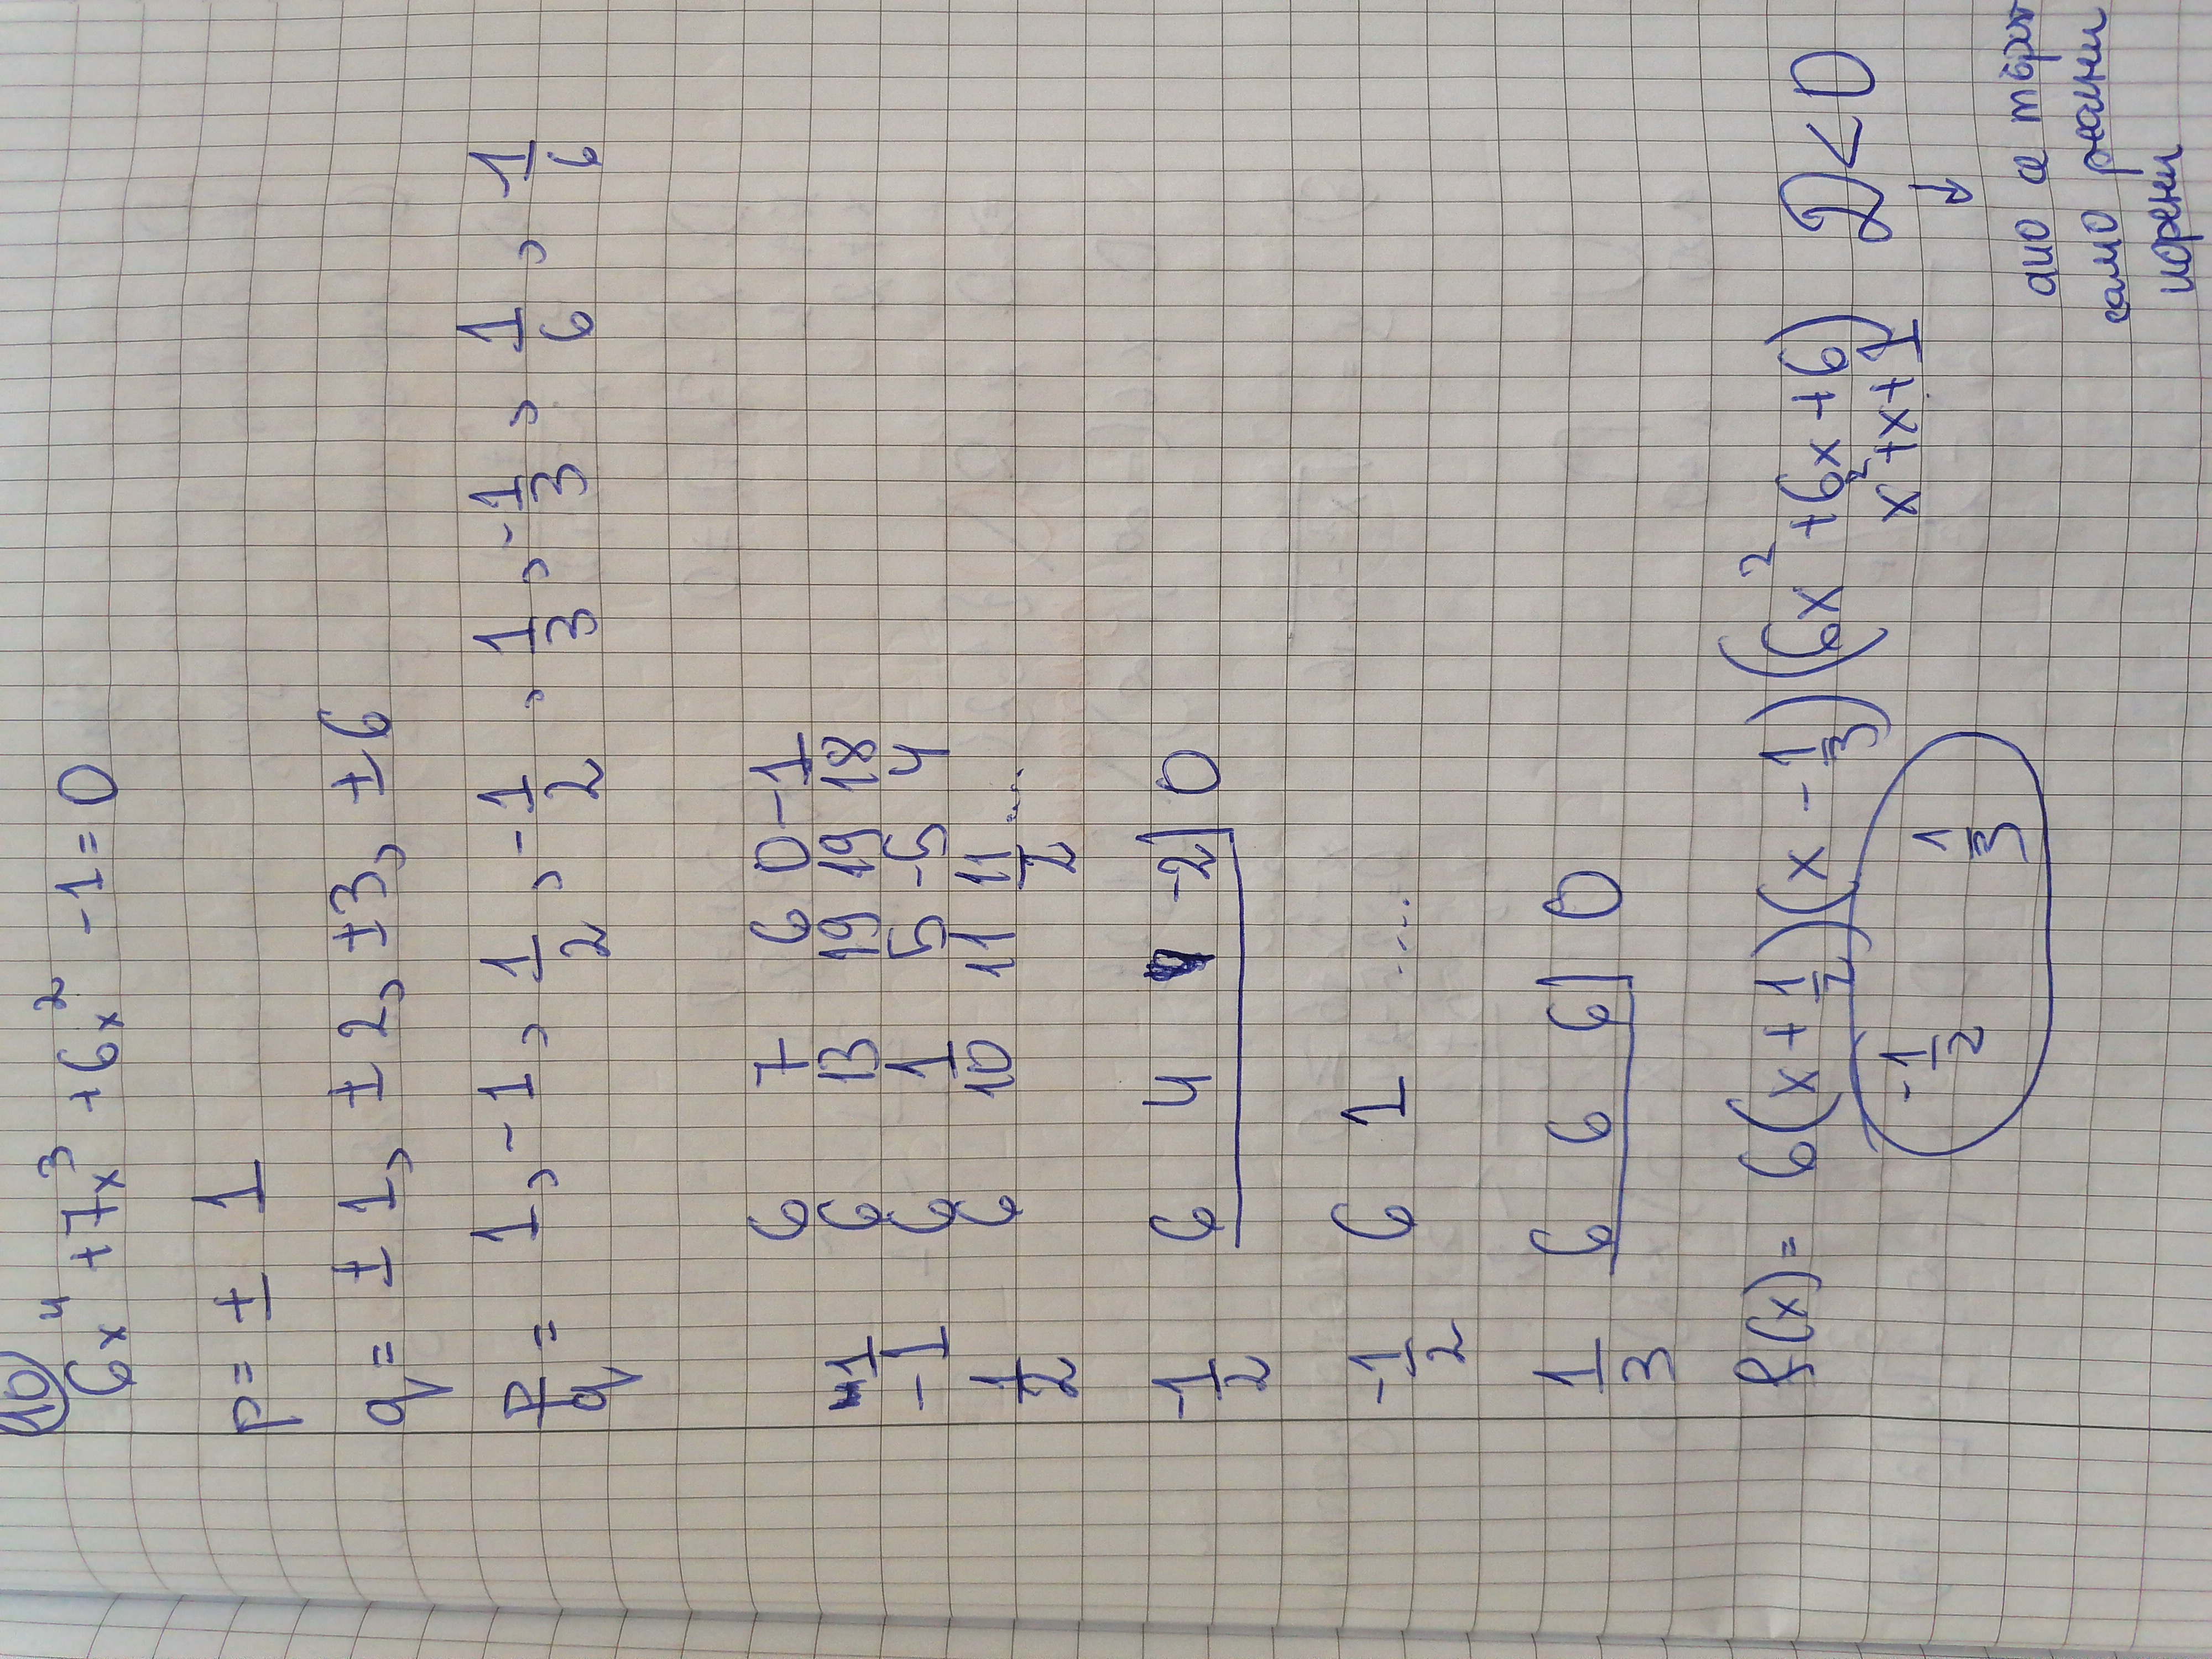 10
6x⁴ + 7x³ + 6x² - 1 = 0
p = ± 1
q = ± 1, ± 2, ± 3, ± 6
p/q = 1, -1, 1/2, -1/2, 1/3, -1/3, 1/6, 1/6
6 7 6 0 -1
1 6 13 19 19 18
-1 6 1 5 -5 4
1/2 6 10 11 11/2 ...
-1/2 6 4 -2] 0
-1/2 6 1 ....
1/3 6 6 6] 0
f(x) = 6(x + 1/2)(x - 1/3)(6x² + 6x + 6) D < 0
x² + x + 1
-1/2 1/3
↓
ако се търсят
само реални
корени